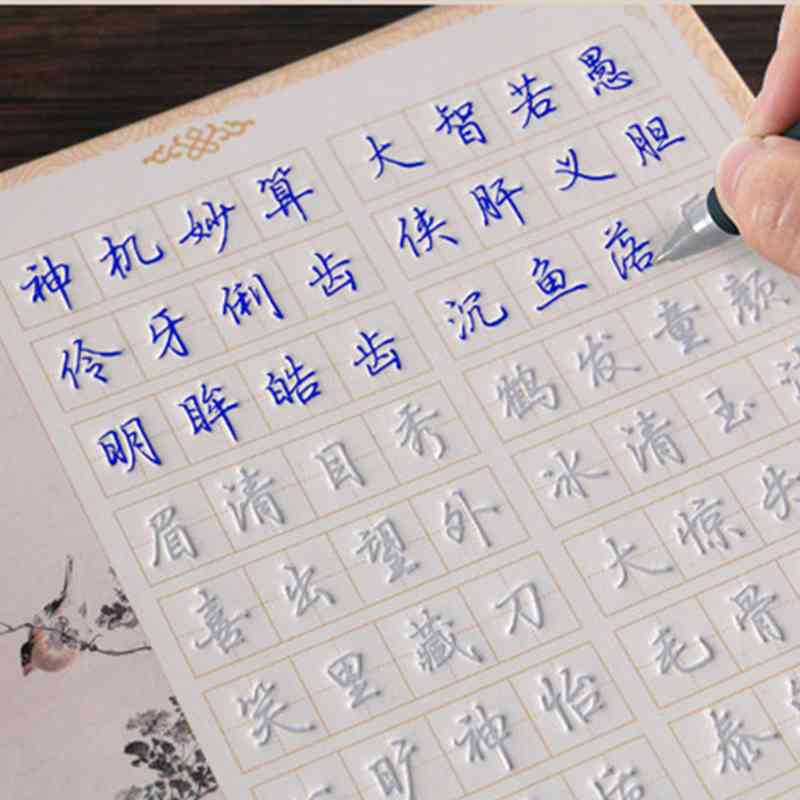 神机妙算
大智若愚
伶牙俐齿
侠肝义胆
明眸皓齿
沉鱼落
眉清目秀
鹤发童颜
喜出望外
冰清玉洁
笑里藏刀
大惊失
旷神怡
毛骨
泰